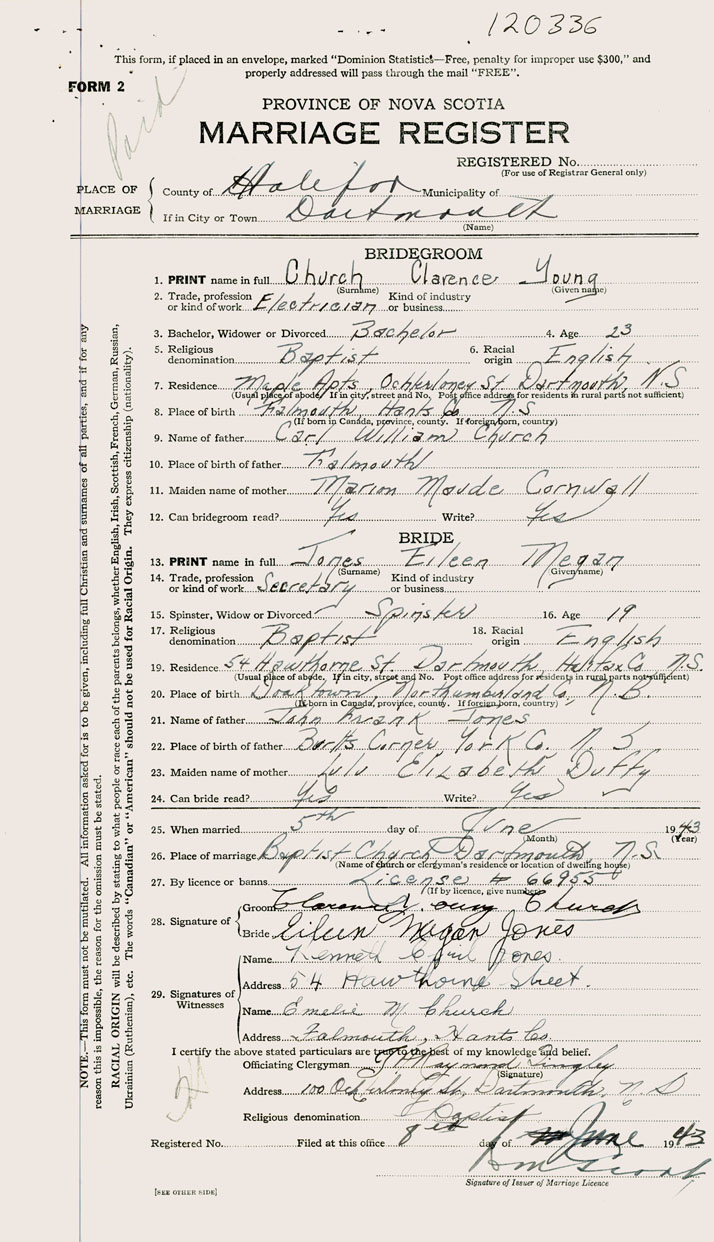 120336
This form, if placed in an envelope, marked "Dominion Statistics—Free, penalty for improper use $300," and
properly addressed will pass through the mail "FREE".
FORM 2
Paid
PROVINCE OF NOVA SCOTIA
MARRIAGE REGISTER
REGISTERED No.
(For use of Registrar General only)
PLACE OF MARRIAGE
County of Halifax Municipality of
If in City or Town Dartmouth
(Name)
BRIDEGROOM
1. PRINT name in full Church Clarence Young
(Surname) (Given name)
2. Trade, profession or kind of work Electrician Kind of industry or business
3. Bachelor, Widower or Divorced Bachelor 4. Age 23
5. Religious denomination Baptist 6. Racial origin English
7. Residence Maple Apts, Ochterloney St. Dartmouth, N.S
(Usual place of abode, If in city, street and No. Post office address for residents in rural parts not sufficient)
8. Place of birth Falmouth, Hants Co N.S
(If born in Canada, province, county. If foreign born, country)
9. Name of father Carl William Church
10. Place of birth of father Falmouth
11. Maiden name of mother Marion Maude Cornwall
12. Can bridegroom read? Yes Write? Yes
BRIDE
13. PRINT name in full Jones Eileen Megan
(Surname) (Given name)
14. Trade, profession or kind of work Secretary Kind of industry or business
15. Spinster, Widow or Divorced Spinster 16. Age 19
17. Religious denomination Baptist 18. Racial origin English
19. Residence 54 Hawthorne St. Dartmouth Halifax Co N.S.
(Usual place of abode, If in city, street and No. Post office address for residents in rural parts not sufficient)
20. Place of birth Doaktown, Northumberland Co, N.B.
(If born in Canada, province, county. If foreign born, country)
21. Name of father John Frank Jones
22. Place of birth of father Burtts Corner York Co. N.
23. Maiden name of mother Lulu Elizabeth Duffy
24. Can bride read? Yes Write? Yes
25. When married 5th day of June 1943
(Month) (Year)
26. Place of marriage Baptist Church Dartmouth, N.S.
(Name of church or clergyman's residence or location of dwelling house)
27. By licence or banns License # 66955
(If by licence, give number)
28. Signature of
Groom Clarence Young Church
Bride Eileen Megan Jones
29. Signatures of Witnesses
Name Kenneth Cyril Jones.
Address 54 Hawthorne Street.
Name Emelie M. Church
Address Falmouth, Hants Co.
I certify the above stated particulars are true to the best of my knowledge and belief.
Officiating Clergyman Raymond
(Signature)
Address 100 Ochterloney St., Dartmouth, N.S
Religious denomination Baptist
Registered No. Filed at this office 8 day of June 1943
Signature of Issuer of Marriage Licence
[SEE OTHER SIDE]
NOTE.—This form must not be mutilated. All information asked for is to be given, including full Christian and surnames of all parties, and if for any
reason this is impossible, the reason for the omission must be stated.
RACIAL ORIGIN will be described by stating to what people or race each of the parents belongs, whether English, Irish, Scottish, French, German, Russian,
Ukrainian (Ruthenian), etc. The words "Canadian" or "American" should not be used for Racial Origin. They express citizenship (nationality).